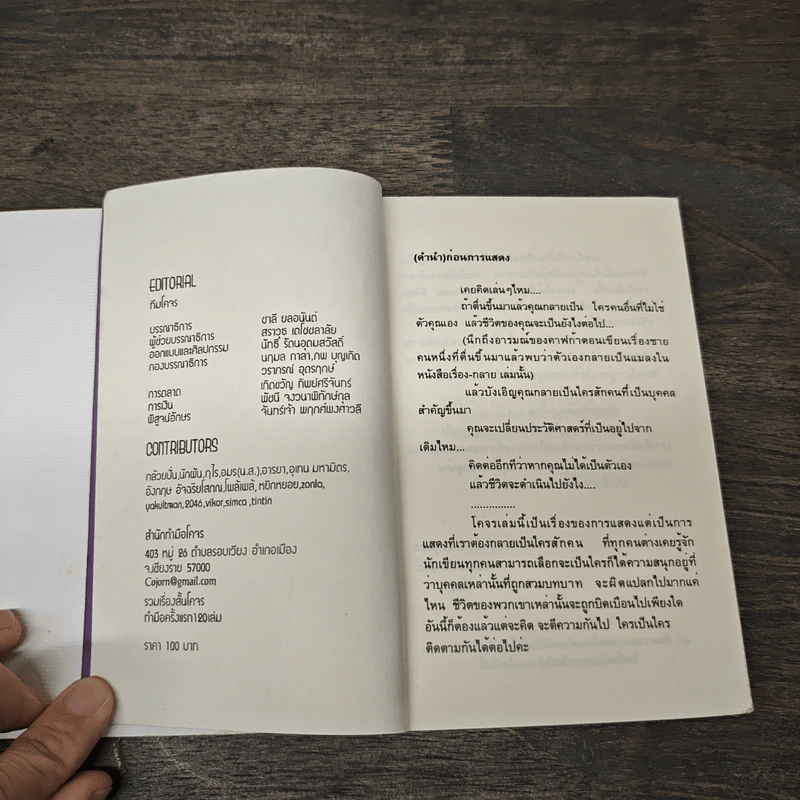 EDITORIAL
ทีมโคจร
บรรณาธิการ ชาลี ยลอนันต์
ผู้ช่วยบรรณาธิการ สราวุธ เตโชชลาลัย
ออกแบบและศิลปกรรม นักธี รัตนอุดมสวัสดิ์
กองบรรณาธิการ นฤมล กาล่า,ภพ บุญเกิด
วราภรณ์ อุดรฤกษ์
การตลาด เกิดขวัญ ทิพย์ศรีจันทร์
การเงิน พัชนี จงวนาพิทักษ์กุล
พิสูจน์อักษร จันทร์เจ้า พฤกศ์พงศาวลี
CONTRIBUTORS
กล้วยปั่น,นักฝัน,กุไร,อมร(น.ส.),อารยา,อุเทน มหามิตร,
อังกฤษ อัจฉริยโสภณ,โพล้เพล้, หยิกหยอย,zonla,
yakultman,2046,vikor,simca ,tintin
สำนักทำมือโคจร
403 หมู่ 26 ตำบลรอบเวียง อำเภอเมือง
จ.เชียงราย 57000
Cojorn@gmail.com
รวมเรื่องสั้นโคจร
ทำมือครั้งแรก120เล่ม
ราคา 100 บาท
(คำนำ)ก่อนการแสดง
เคยคิดเล่นๆไหม....
ถ้าตื่นขึ้นมาแล้วคุณกลายเป็น ใครคนอื่นที่ไม่ใช่
ตัวคุณเอง แล้วชีวิตของคุณจะเป็นยังไงต่อไป...
(นึกถึงอารมณ์ของคาฟก้าตอนเขียนเรื่องชาย
คนหนึ่งที่ตื่นขึ้นมาแล้วพบว่าตัวเองกลายเป็นแมลงใน
หนังสือเรื่อง-กลาย เล่มนั้น)
แล้วบังเอิญคุณกลายเป็นใครสักคนที่เป็นบุคคล
สำคัญขึ้นมา
คุณจะเปลี่ยนประวัติศาสตร์ที่เป็นอยู่ไปจาก
เดิมไหม...
คิดต่ออีกที่ว่าหากคุณไม่ได้เป็นตัวเอง
แล้วชีวิตจะดำเนินไปยังไง....
...............
โคจรเล่มนี้เป็นเรื่องของการแสดงแต่เป็นการ
แสดงที่เราต้องกลายเป็นใครสักคน ที่ทุกคนต่างเคยรู้จัก
นักเขียนทุกคนสามารถเลือกจะเป็นใครก็ได้ความสนุกอยู่ที่
ว่าบุคคลเหล่านั้นที่ถูกสวมบทบาท จะผิดแปลกไปมากแค่
ไหน ชีวิตของพวกเขาเหล่านั้นจะถูกบิดเบือนไปเพียงใด
อันนี้ก็ต้องแล้วแต่จะคิด จะตีความกันไป ใครเป็นใคร
ติดตามกันได้ต่อไปค่ะ